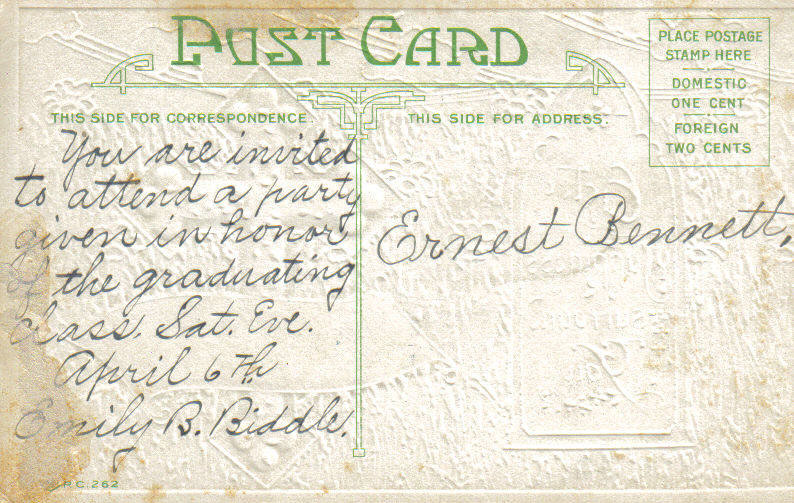 POST CARD
PLACE POSTAGE
STAMP HERE
DOMESTIC
ONE CENT
FOREIGN
TWO CENTS
THIS SIDE FOR CORRESPONDENCE.
THIS SIDE FOR ADDRESS.
You are invited
to attend a party
given in honor
of the graduating
class. Sat. Eve.
April 6th
Emily B. Biddle.
Ernest Bennett,
P.C. 262